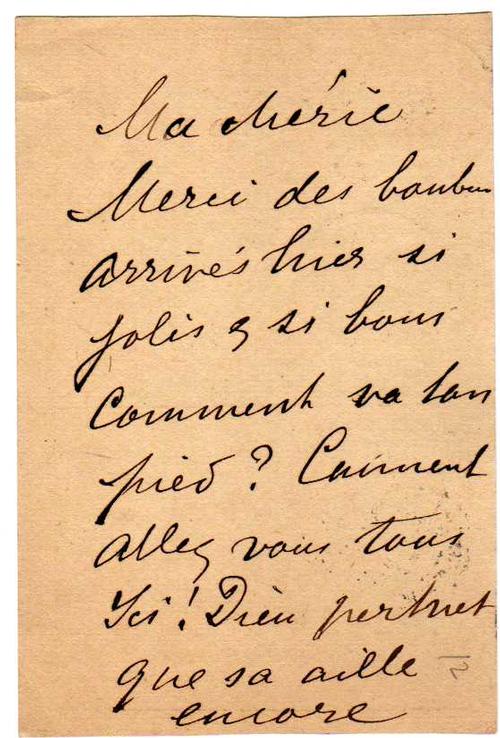 Ma chérie
Merci des bonbons
arrivés hier si
jolis & si bons
Comment va ton
pied ? Comment
allez vous tous
Ici ! Dieu permet
que sa aille
encore
12